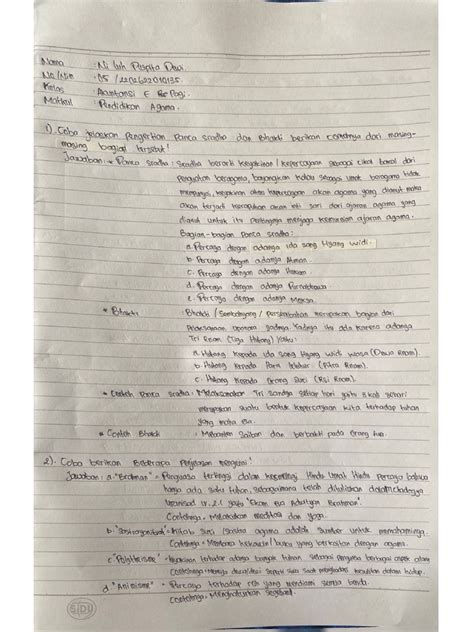 Nama : Ni Luh Puspita Dewi
No/Nim : 05 / 2202622010135.
Kelas : Akuntansi E Pagi.
Matkul : Pendidikan Agama.
1) Coba jelaskan Pengertian Panca sradha dan Bhakti berikan contohnya dari masing-
masing bagian tersebut!
Jawaban : * Panca Sradha : Sradha berarti keyakinan / kepercayaan sebagai cikal bakal dari
Penguatan beragama, bayangkan kalau sebagai umat beragama tidak
mempunyai keyakinan akan kepercayaan akan agama yang dianut maka
akan terjadi kerapuhan akan inti sari dari ajaran agama yang
dianut untuk itu pentingnya menjaga kemurnian ajaran agama.
Bagian-bagian Panca Sradha :
a. Percaya dengan adanya ida sang Hyang widi.
b. Percaya dengan adanya Atman.
c. Percaya dengan adanya
d. Percaya dengan adanya Purnabhawa
e. Percaya dengan adanya Moksa.
* Bhakti : Bhakti / Sembahyang / Persembahan merupakan bagian dari
Pelaksanaan upacara yadnya. Yadnya itu ada karena adanya
Tri Rnam (Tiga Hutang) Yaitu :
a. Hutang kepada ida sang Hyang widi wasa (Dewa Rnam).
b. Hutang kepada Para leluhur (Pitra Rnam).
c. Hutang kepada Orang Suci (Rsi Rnam).
* Contoh Panca Sradha : Melaksanakan Tri Sandya setiap hari yaitu 3 kali sehari
merupakan suatu bentuk kepercayaan kita terhadap tuhan
yang maha esa.
* Contoh Bhakti : Mebanten Saiban dan berbakti pada orang tua.
2). Coba berikan Beberapa Penjelasan mengenai!
Jawaban : a. "Brahman" = Penguasa tertinggi dalam Hindu. Umat Hindu Percaya bahwa
hanya ada satu tuhan, sebagaimana telah dituliskan dalam
IV.2.1 yaitu "Ekam Eva Adwityam Brahman".
Contohnya, Melakukan meditasi dan yoga.
b. = kitab suci /Sastra agama adalah sumber untuk memahaminya.
Contohnya = Membaca kitab suci / buku yang berkaitan dengan agama.
c. "Politeisme" = keyakinan terhadap adanya banyak tuhan sebagai penguasa berbagai aspek alam.
Contohnya =
d. "Animisme" = Percaya terhadap roh yang mendiami semua benda.
Contohnya, Menghaturkan Segehan.
SIDU